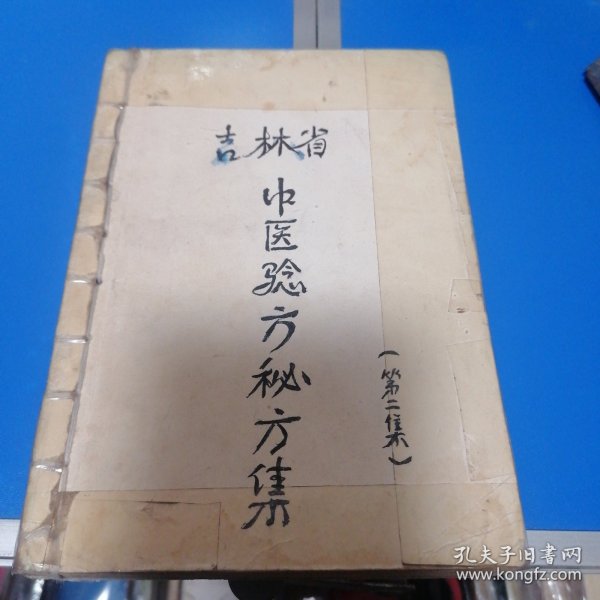 吉林省
中医验方秘方集
（第二集）
孔夫子旧书网
www.kongfz.com